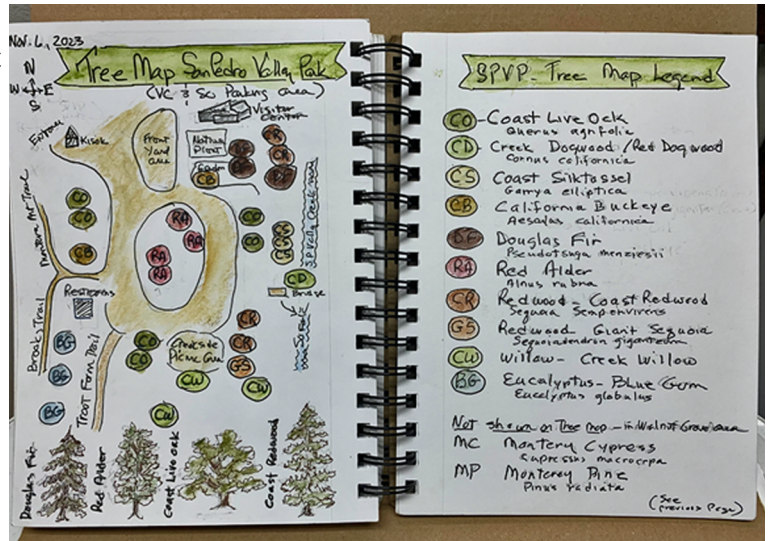 Nov. 6, 2023
Tree Map San Pedro Valley Park
(VC & So Parking area)
N
W E
S
Visitor
Center
Kisok
Front
Yard
area
Native
Plant
Garden
CB
DF
CR
CR
DF
DF
CO
CO
CB
RA
RA
RA
RA
CO
CO
CS
CS
CS
CD
Bridge
Restrooms
Brooks Trail
Trout Farm Trail
BG
BG
BG
CO
CO
Picnic Area
CR
CR
GS
CW
CW
CW
So Fork
Douglas Fir
Red Alder
Coast Live Oak
Coast Redwood
SPVP - Tree Map Legend
CO - Coast Live Ock
Querus agnfolia
CD Creek Dogwood / Red Dogwood
Cornus californica
CS Coast Silktassel
Garrya elliptica
CB California Buckeye
Aesculas californica
DF Douglas Fir
Pseudotsuga menziesii
RA Red Alder
Alnus rubra
CR Redwood - Coast Redwood
Sequoia Sempenvirens
GS Redwood Giant Sequoia
Sequoiadendron giganteum
CW Willow - Creek Willow
BG Eucalyptus - Blue Gum
Eucalyptus globulus
Not shown on Tree map - in Walnut Grove area
MC Monterey Cypress
Cupressus macrocrpa
MP Monterey Pine
Pinus radiata
(See
previous Page)